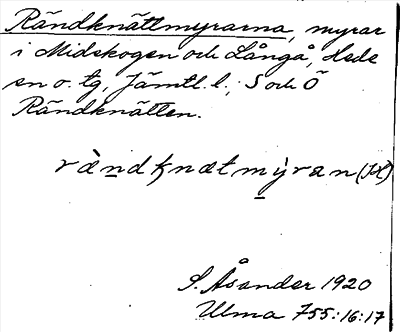 Rändknättmyrarna, myrar
i Midskogen och Långå, Hede
sn o. tg, Jämtl. l.; S och Ö
Rändknätten.
ræ̀ndknætmỳran
S. Åsander 1920
Ulma 755:16:17